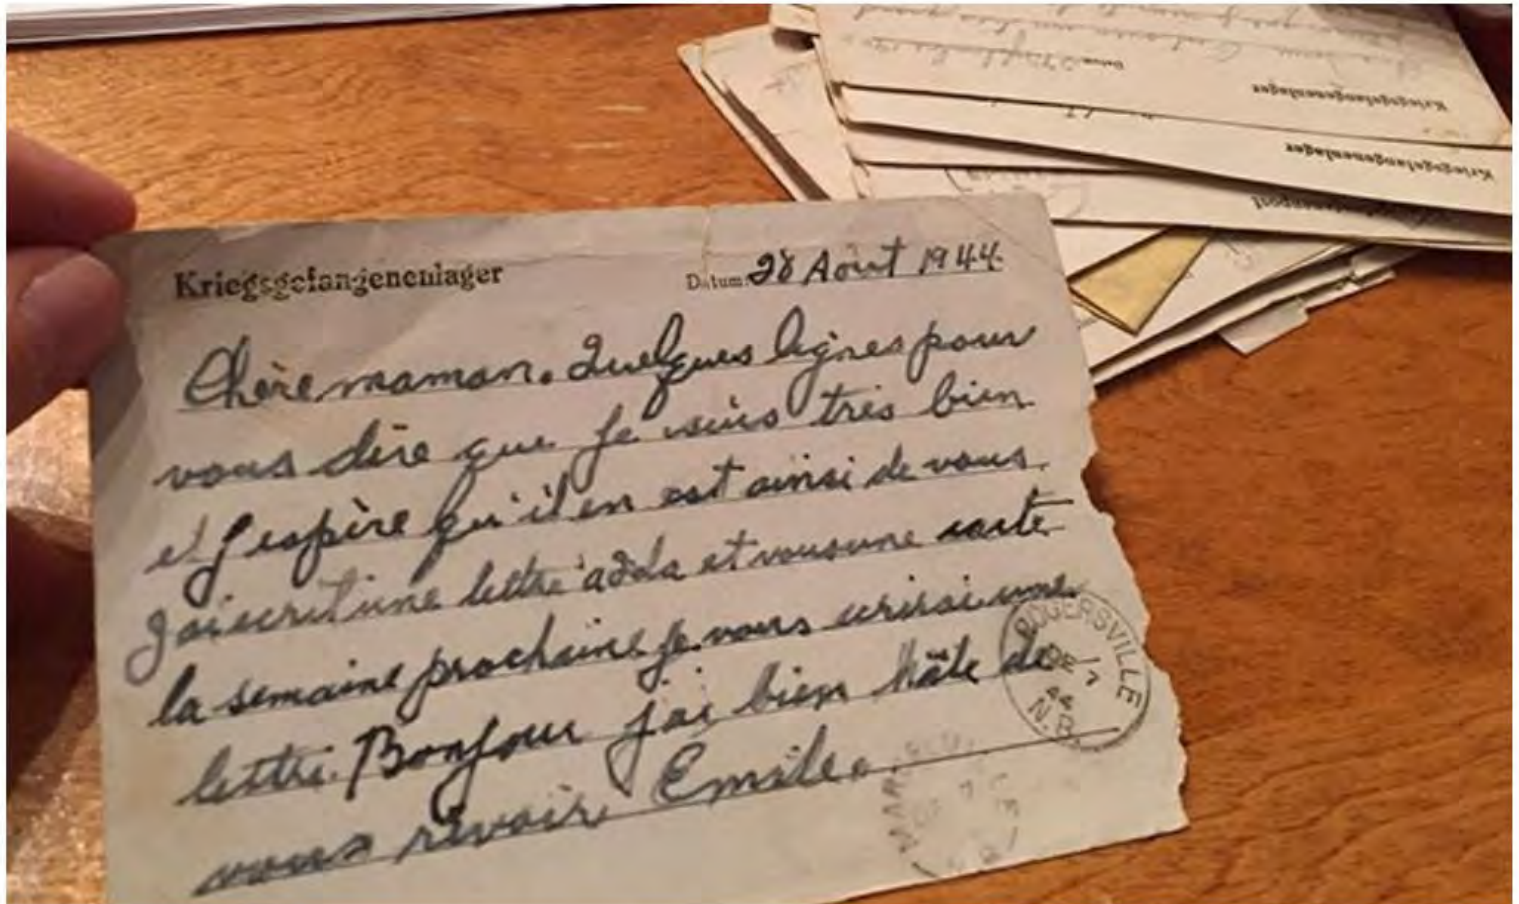 Kriegsgefangenenlager Datum: 28 Août 1944.
Chère maman. Quelques lignes pour
vous dire que je suis très bien
et j'espère qu'il en est ainsi de vous.
J'ai ecrit une lettre à Ada et vous une carte
la semaine prochaine je vous ecrirai une
lettre. Bonjour j'ai bien hâte de
vous revoir Emile.
ROGERSVILLE
44
N.B.
Kriegsgefangenenlager
Datum:
Kriegsgefangenenlager